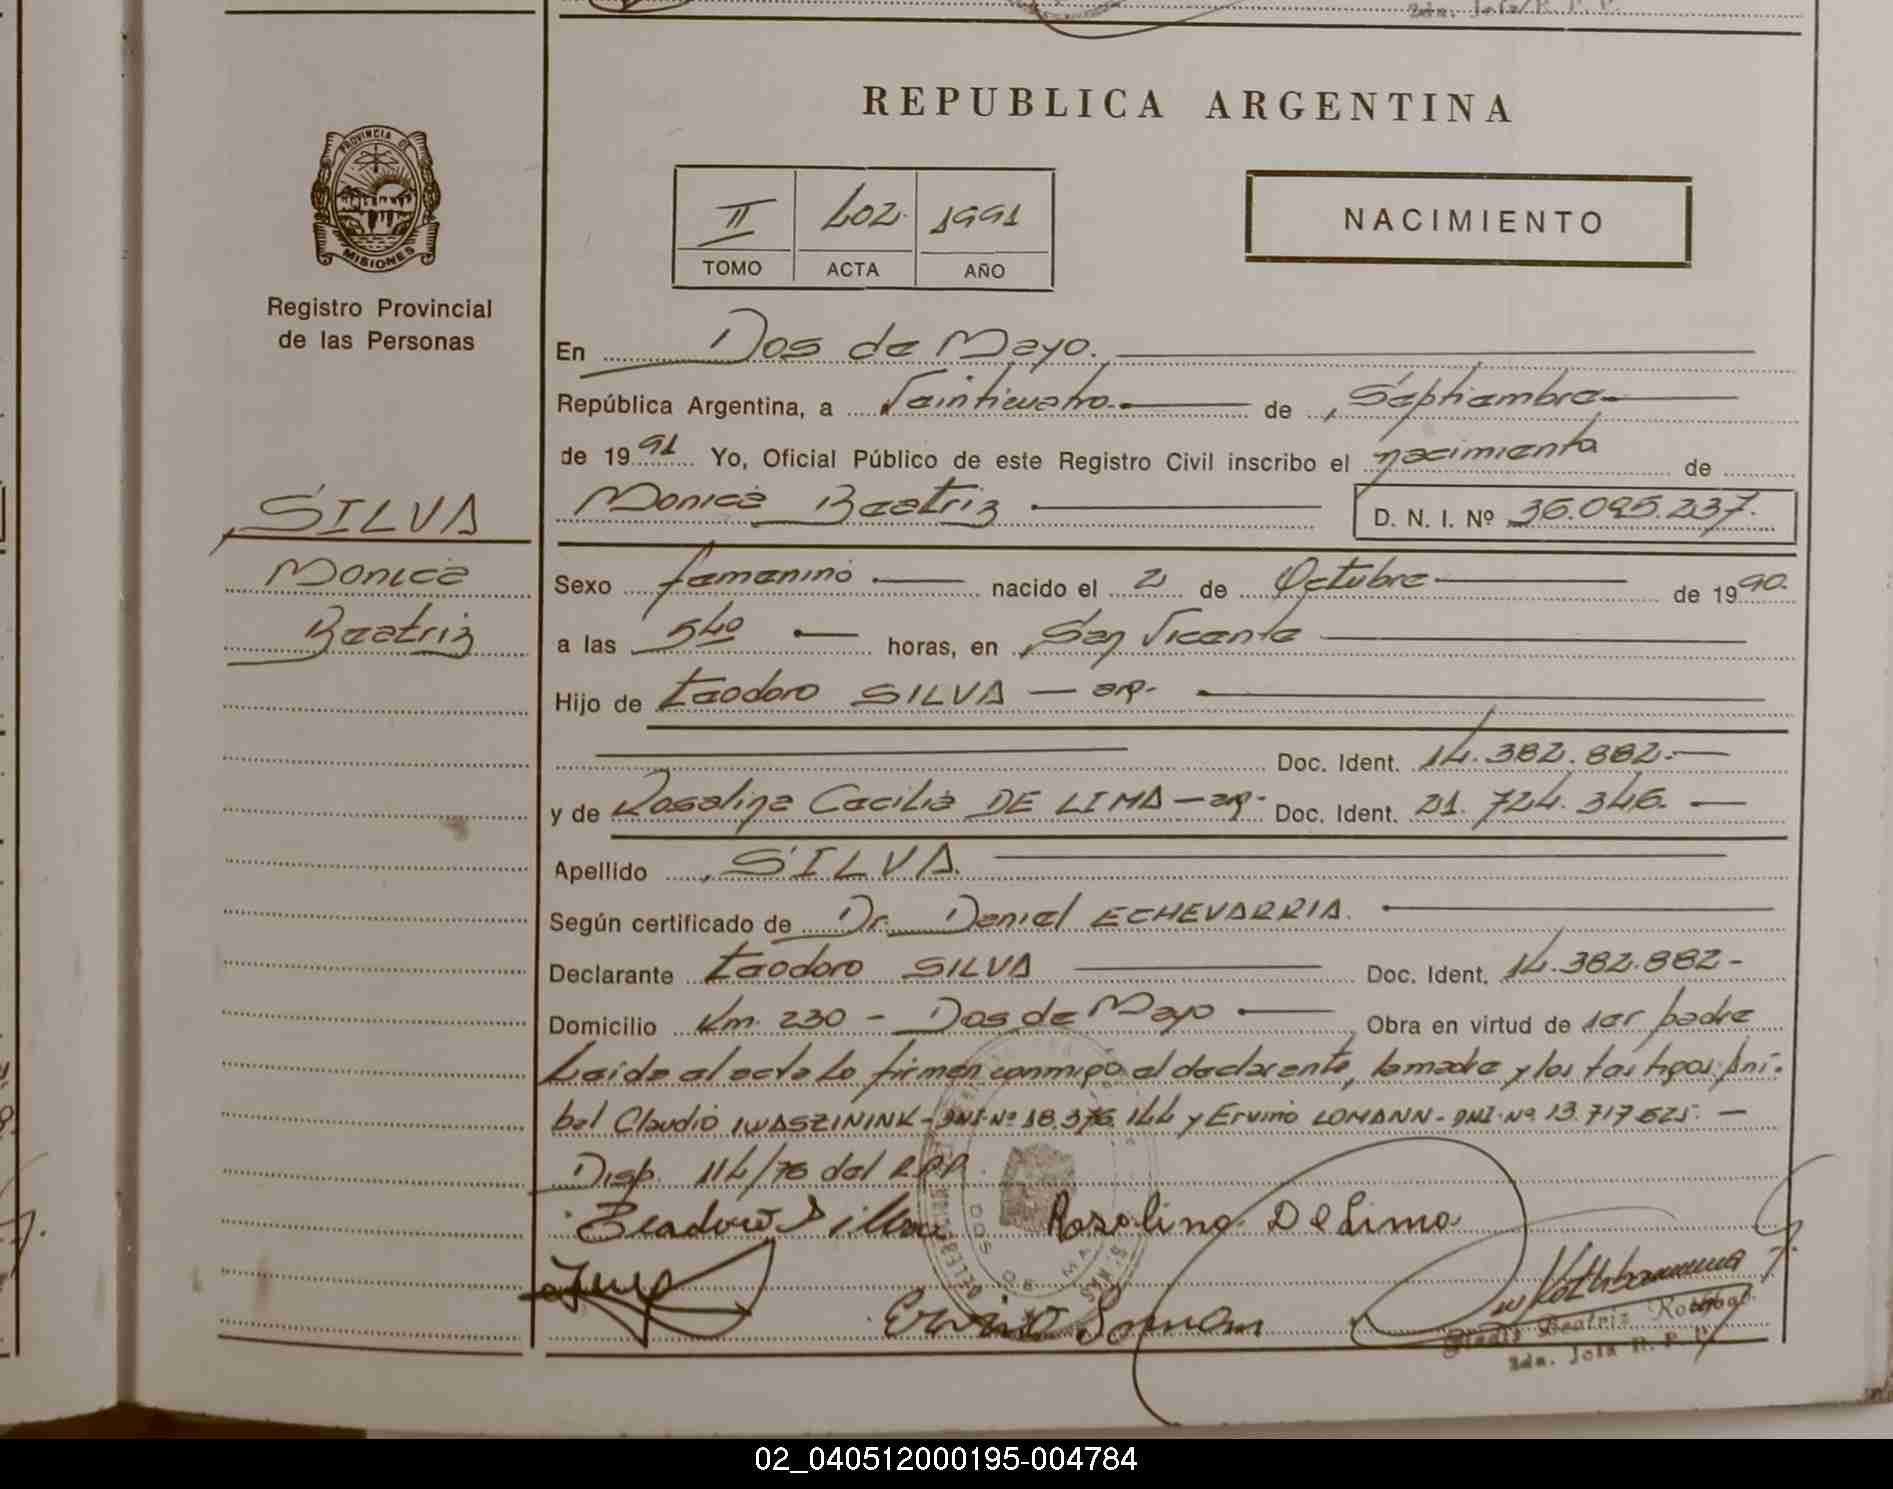 2da. Jefa R. P. P.
REPUBLICA ARGENTINA
PROVINCIA DE
MISIONES
Registro Provincial
de las Personas
II 402. 1991
TOMO ACTA AÑO
NACIMIENTO
En Dos de Mayo.
República Argentina, a Veinticuatro de Septiembre
de 1991 Yo, Oficial Público de este Registro Civil inscribo el nacimiento de
Monica Beatriz D. N. I. Nº 36.095.237.
SILVA
Monica
Beatriz
Sexo femenino nacido el 2 de Octubre de 1990.
a las 540 horas, en San Vicente
Hijo de Teodoro SILVA - arg.
Doc. Ident. 14.382.882.-
y de Rosalina Cecilia DE LIMA - arg. Doc. Ident. 21.724.346. -
Apellido SILVA.
Según certificado de Dr. Daniel ECHEVARRIA.
Declarante Teodoro SILVA Doc. Ident. 14.382.882-
Domicilio Km. 230 - Dos de Mayo Obra en virtud de ser padre
Leida el acta lo firman conmigo el declarante, la madre y los testigos: Aní-
bal Claudio IWASZININK - DNI. Nº 18.376.144 y Ervino LOMANN - DNI. Nº 13.717.625. -
Disp. 114/76 del RPP.
Rosalina De Lima
Gladis Beatriz
2da. Jefa R. P. P.
02_040512000195-004784